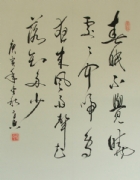 春眠不覺曉
處々聞啼鳥
夜來風雨聲花
落知多少
庚寅年